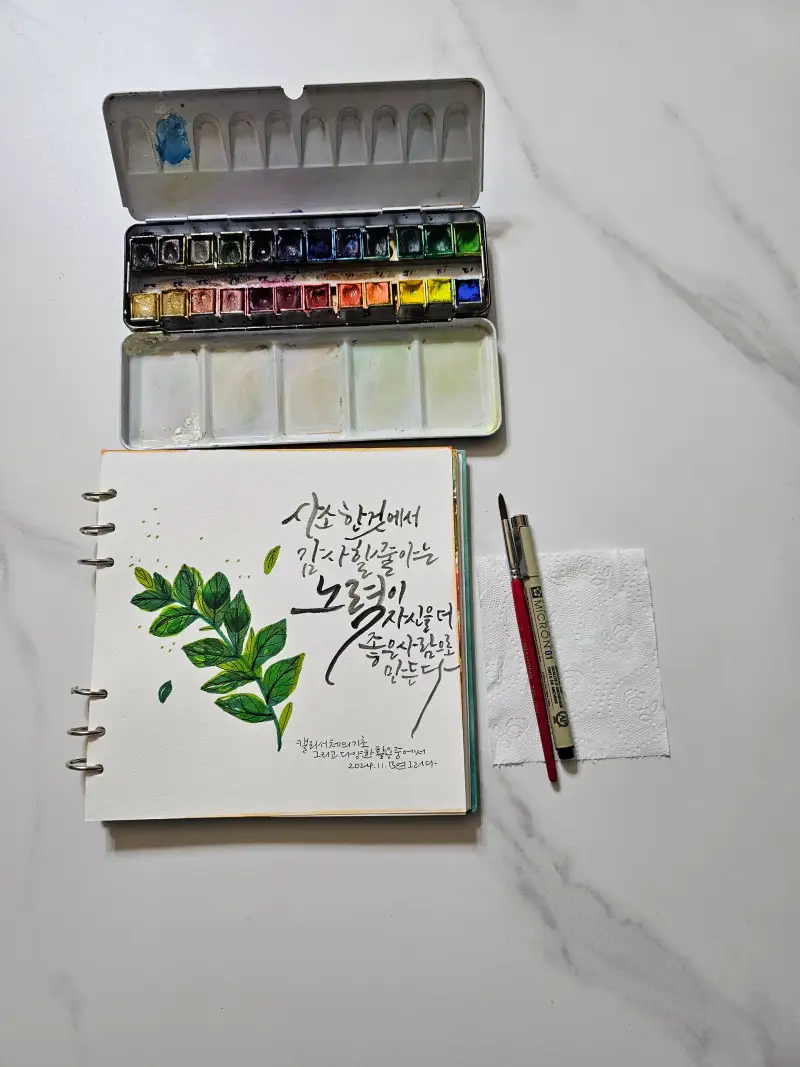 사소한것에서
감사할줄아는
노력이
자신을더
좋은사람으로
만든다
캘리서체의기초
그리고다양한활용중에서
2024.11. 그리다
MICRON 01